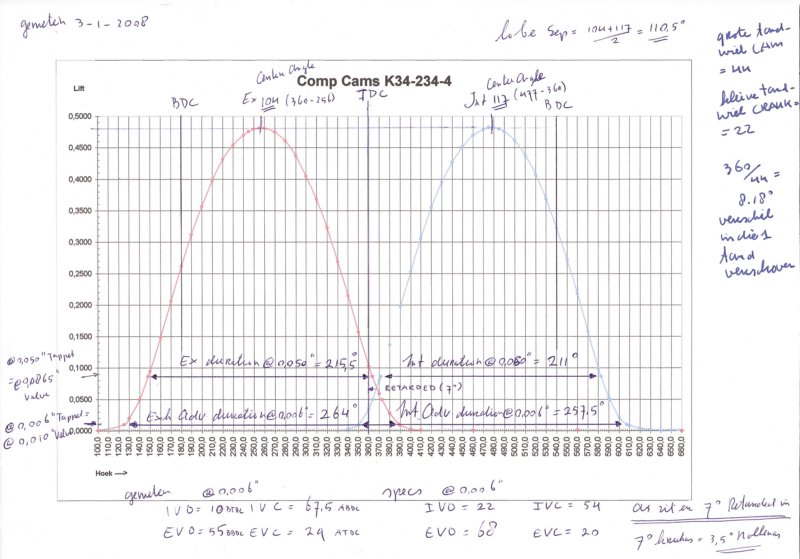 gemeten 3-1-2008
Lobe Sep = 104+117 / 2 = 110,5°
grote tand-
wiel CAM
= 44
kleine tand-
wiel CRANK =
= 22
360/44 =
8.18°
verschil
indien 1
tand
verschoven
Center Angle
Ex 104 (360-256)
Center Angle
Int 117 (477-360)
Comp Cams K34-234-4
Lift
BDC
TDC
BDC
0,5000
0,4500
0,4000
0,3500
0,3000
0,2500
0,2000
0,1500
0,1000
0,0500
0,0000
Ex duration @ 0,050" = 215,5°
Int duration @ 0,050" = 211°
RETARDED (7°)
Exh Adv duration @ 0,006" = 264°
Int Adv duration @ 0,006" = 257,5°
@ 0,050" Tappet
= @ 0,0865"
Valve
@ 0,006" Tappet =
@ 0,010" Valve
100,0 110,0 120,0 130,0 140,0 150,0 160,0 170,0 180,0 190,0 200,0 210,0 220,0 230,0 240,0 250,0 260,0 270,0 280,0 290,0 300,0 310,0 320,0 330,0 340,0 350,0 360,0 370,0 380,0 390,0 400,0 410,0 420,0 430,0 440,0 450,0 460,0 470,0 480,0 490,0 500,0 510,0 520,0 530,0 540,0 550,0 560,0 570,0 580,0 590,0 600,0 610,0 620,0 630,0 640,0 650,0 660,0
Hoek --->
gemeten @ 0,006"
IVO = 10 BTDC IVC = 67,5 ABDC
EVO = 55 BBDC EVC = 29 ATDC
specs @ 0,006"
IVO = 22 IVC = 54
EVO = 68 EVC = 20
as zit er 7° Retarded in
7° krukas = 3,5° Nokkenas